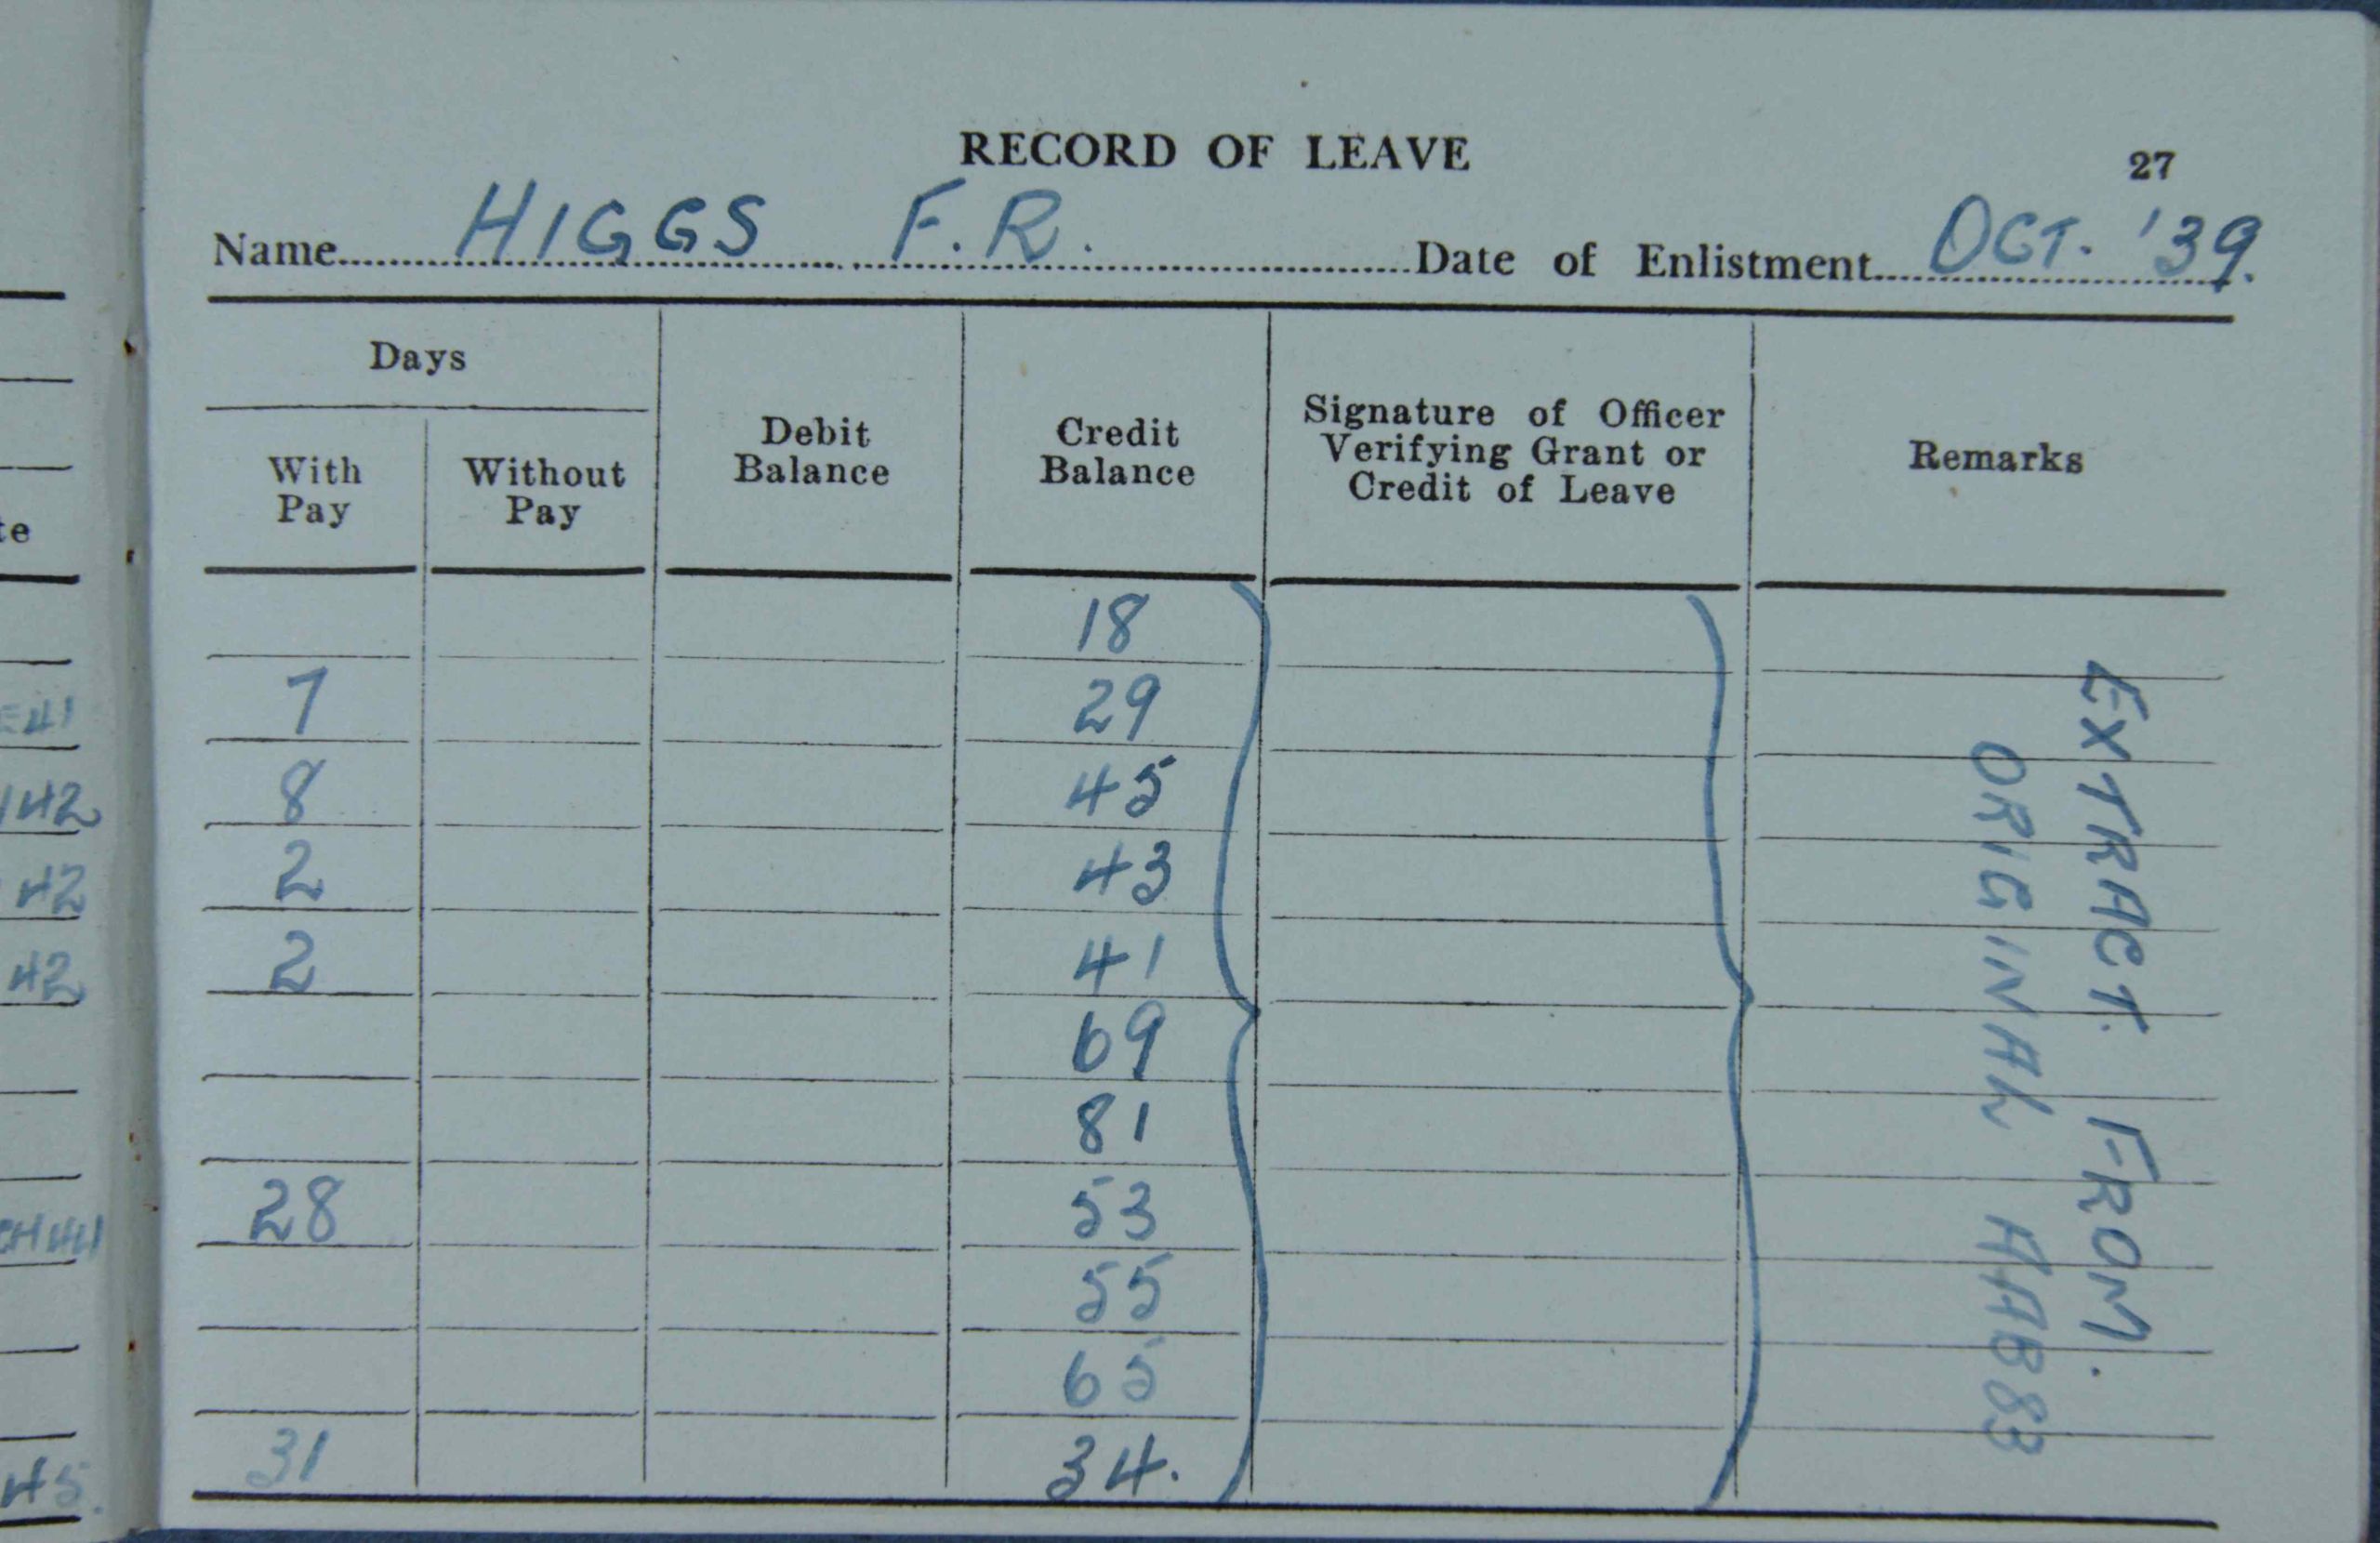 RECORD OF LEAVE
27
Name HIGGS F.R. Date of Enlistment OCT. '39.
Days
With Pay
Without Pay
Debit Balance
Credit Balance
Signature of Officer
Verifying Grant or
Credit of Leave
Remarks
18
7 29
8 45
2 43
2 41
69
81
28 53
55
65
31 34.
EXTRACT. FROM.
ORIGINAL AAB83
te
E41
42
42
42
CH44
45.